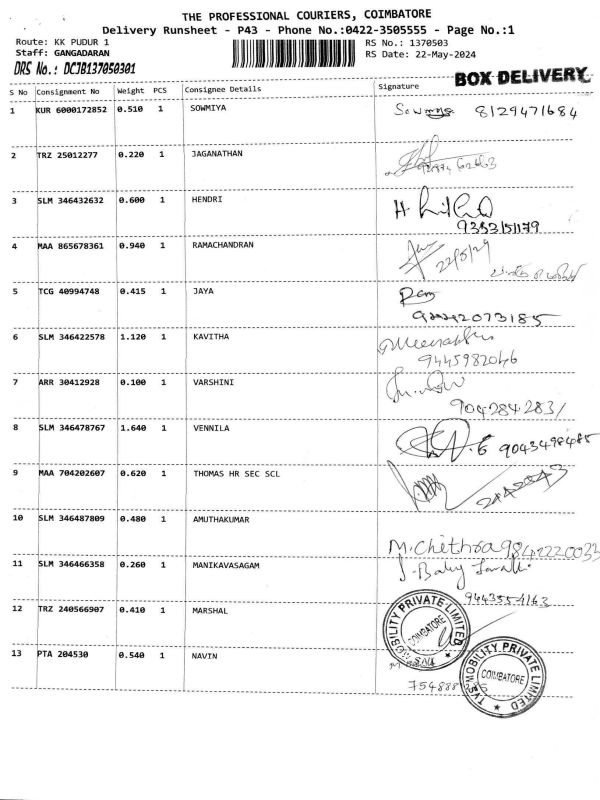 THE PROFESSIONAL COURIERS, COIMBATORE
Delivery Runsheet - P43 - Phone No.:0422-3505555 - Page No.:1
Route: KK PUDUR 1
RS No.: 1370503
Staff: GANGADARAN
RS Date: 22-May-2024
DRS No.: DCJB137050301
BOX DELIVERY
S No Consignment No Weight PCS Consignee Details Signature
1 KUR 6000172852 0.510 1 SOWMIYA Sowmya 8129471684
2 TRZ 25012277 0.220 1 JAGANATHAN
3 SLM 346432632 0.600 1 HENDRI
9353151179
4 MAA 865678361 0.940 1 RAMACHANDRAN
22/5/24
5 TCG 40994748 0.415 1 JAYA
6 SLM 346422578 1.120 1 KAVITHA
9445982046
7 ARR 30412928 0.100 1 VARSHINI
9042842831
8 SLM 346478767 1.640 1 VENNILA
9043498485
9 MAA 704202607 0.620 1 THOMAS HR SEC SCL
2442043
10 SLM 346487809 0.480 1 AMUTHAKUMAR
M. Chethra 9842220033
11 SLM 346466358 0.260 1 MANIKAVASAGAM J. Baby
9443551163
12 TRZ 240566907 0.410 1 MARSHAL
MOBILITY PRIVATE LIMITED
COIMBATORE
13 PTA 204530 0.540 1 NAVIN
TVS MOBILITY PRIVATE LIMITED
COIMBATORE
754888